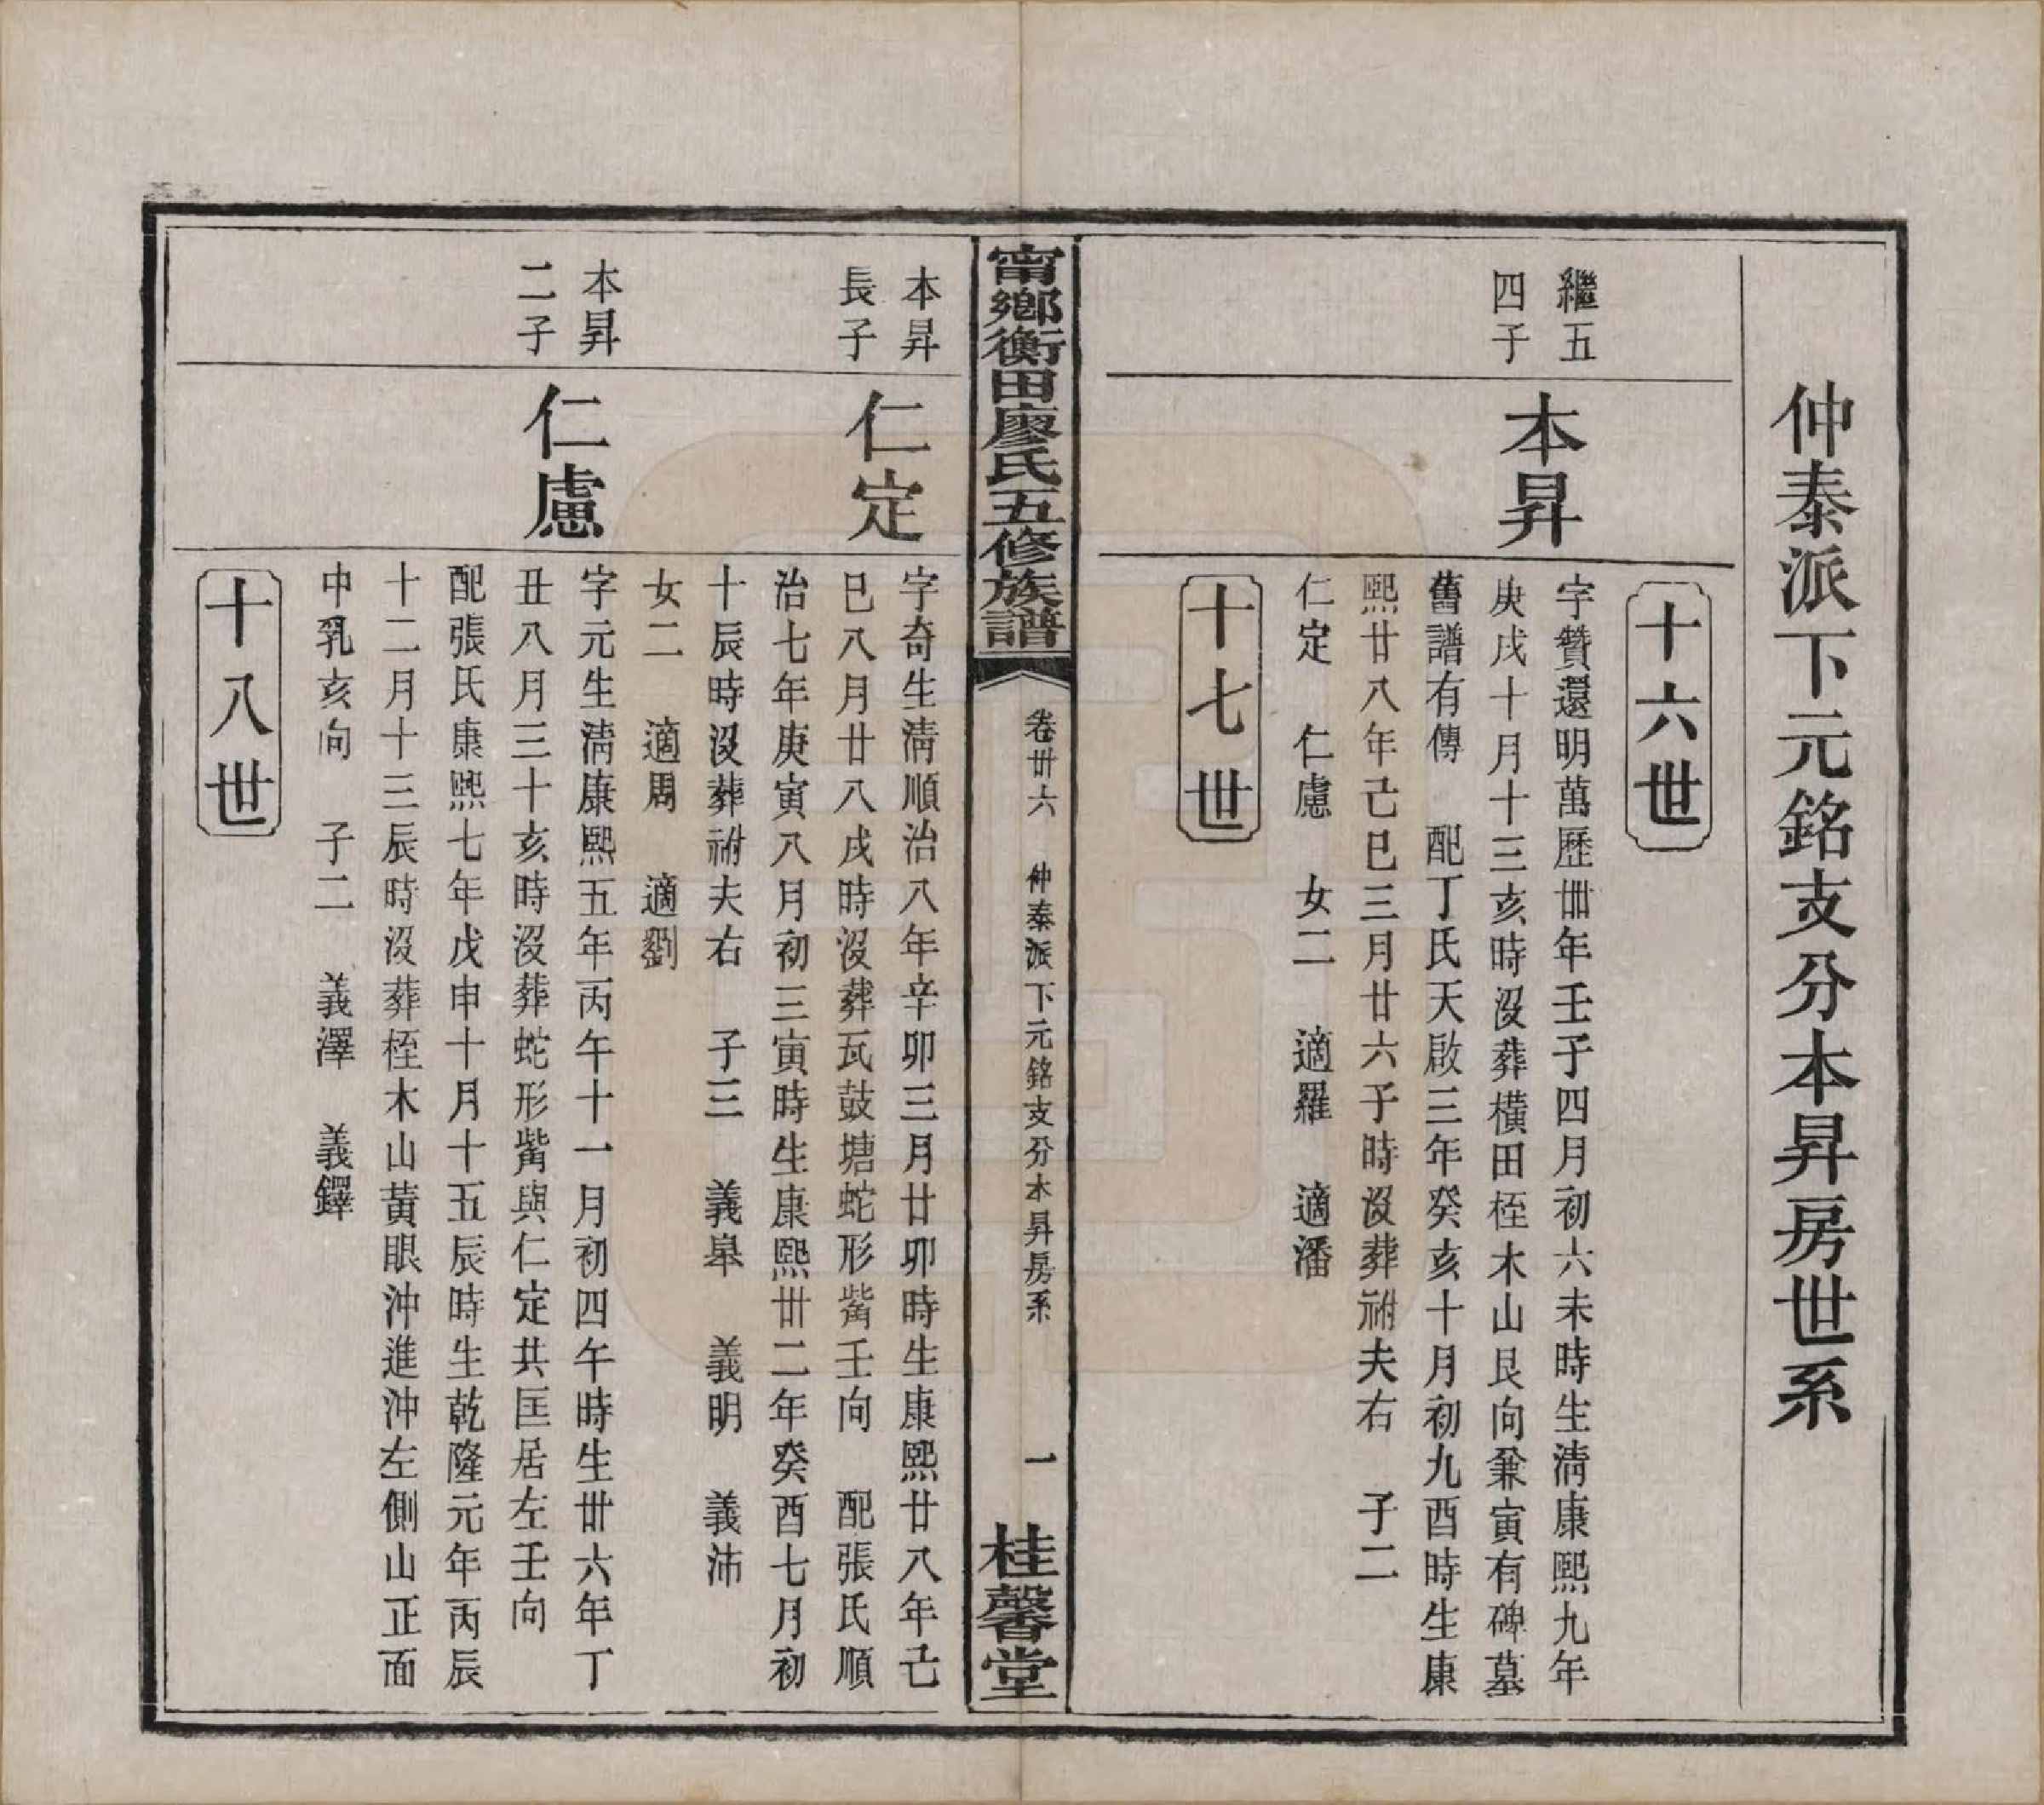 仲泰派下元銘支分本昇房世系
十六世
繼五
四子
本昇
字贊還明萬歷卌年壬子四月初六未時生淸康熙九年
庚戌十月十三亥時沒葬橫田桎木山艮向兼寅有碑墓
舊譜有傳　配丁氏天啟三年癸亥十月初九酉時生康
熙廿八年己巳三月廿六子時沒葬祔夫右　子二
仁定　仁慮　女二　適羅　適潘
十七世
甯鄉衡田廖氏五修族譜
卷卅六　仲泰派下元銘支分本昇房系
一
桂馨堂
本昇
長子
仁定
字奇生淸順治八年辛卯三月廿卯時生康熙廿八年己
巳八月廿八戌時沒葬瓦鼓塘蛇形觜壬向　配張氏順
治七年庚寅八月初三寅時生康熙卅二年癸酉七月初
十辰時沒葬祔夫右　子三　義皋　義明　義沛
女二　適周　適劉
本昇
二子
仁慮
字元生淸康熙五年丙午十一月初四午時生卅六年丁
丑八月三十亥時沒葬蛇形觜與仁定共匡居左壬向
配張氏康熙七年戊申十月十五辰時生乾隆元年丙辰
十二月十三辰時沒葬桎木山黃眼沖進沖左側山正面
中乳亥向　子二　義澤　義鐸
十八世